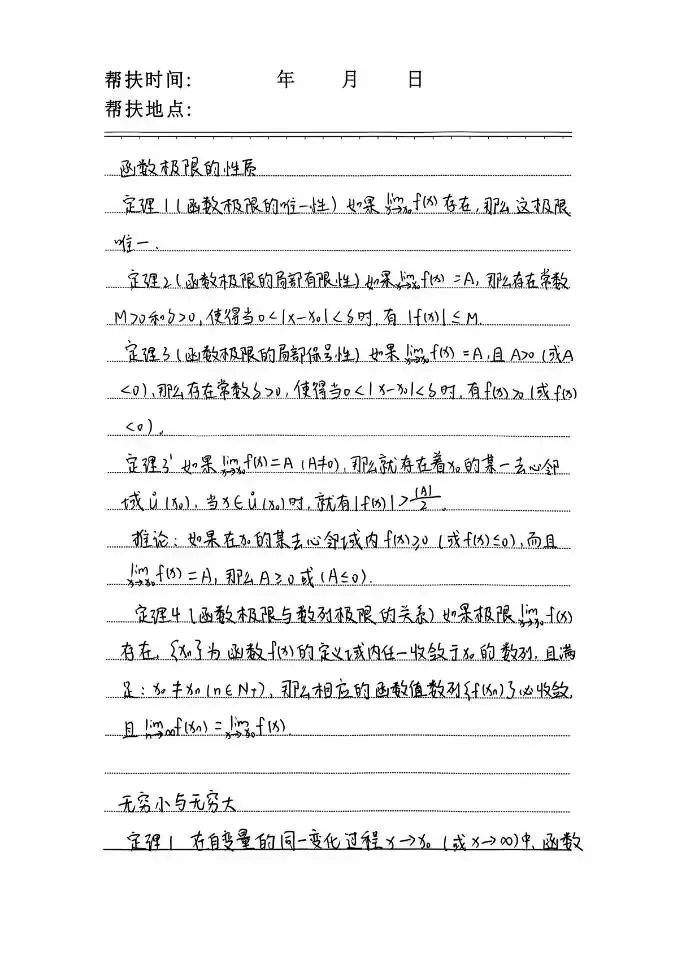 帮扶时间: 年 月 日
帮扶地点:
函数极限的性质
定理1(函数极限的唯一性) 如果 lim x→x₀ f(x) 存在,那么这极限
唯一.
定理2(函数极限的局部有限性) 如果 lim x→x₀ f(x) = A, 那么存在常数
M>0和δ>0, 使得当0<|x-x₀|<δ时, 有 |f(x)|≤M.
定理3(函数极限的局部保号性) 如果 lim x→x₀ f(x) = A, 且 A>0 (或A
<0), 那么存在常数δ>0, 使得当0<|x-x₀|<δ时, 有f(x)>0 (或f(x)
<0).
定理3' 如果 lim x→x₀ f(x) = A (A≠0), 那么就存在着x₀的某一去心邻
域 Ů(x₀), 当x∈Ů(x₀)时, 就有|f(x)|>|A|/2.
推论: 如果在x₀的某去心邻域内f(x)≥0 (或f(x)≤0), 而且
lim x→x₀ f(x) = A, 那么A≥0或(A≤0).
定理4(函数极限与数列极限的关系) 如果极限 lim x→x₀ f(x)
存在, {xₙ}为函数f(x)的定义域内任一收敛于x₀的数列, 且满
足: x₀≠xₙ(n∈N+), 那么相应的函数值数列{f(xₙ)}必收敛,
且 lim n→∞ f(xₙ) = lim x→x₀ f(x).
无穷小与无穷大
定理1 在自变量的同一变化过程x→x₀ (或x→∞)中, 函数